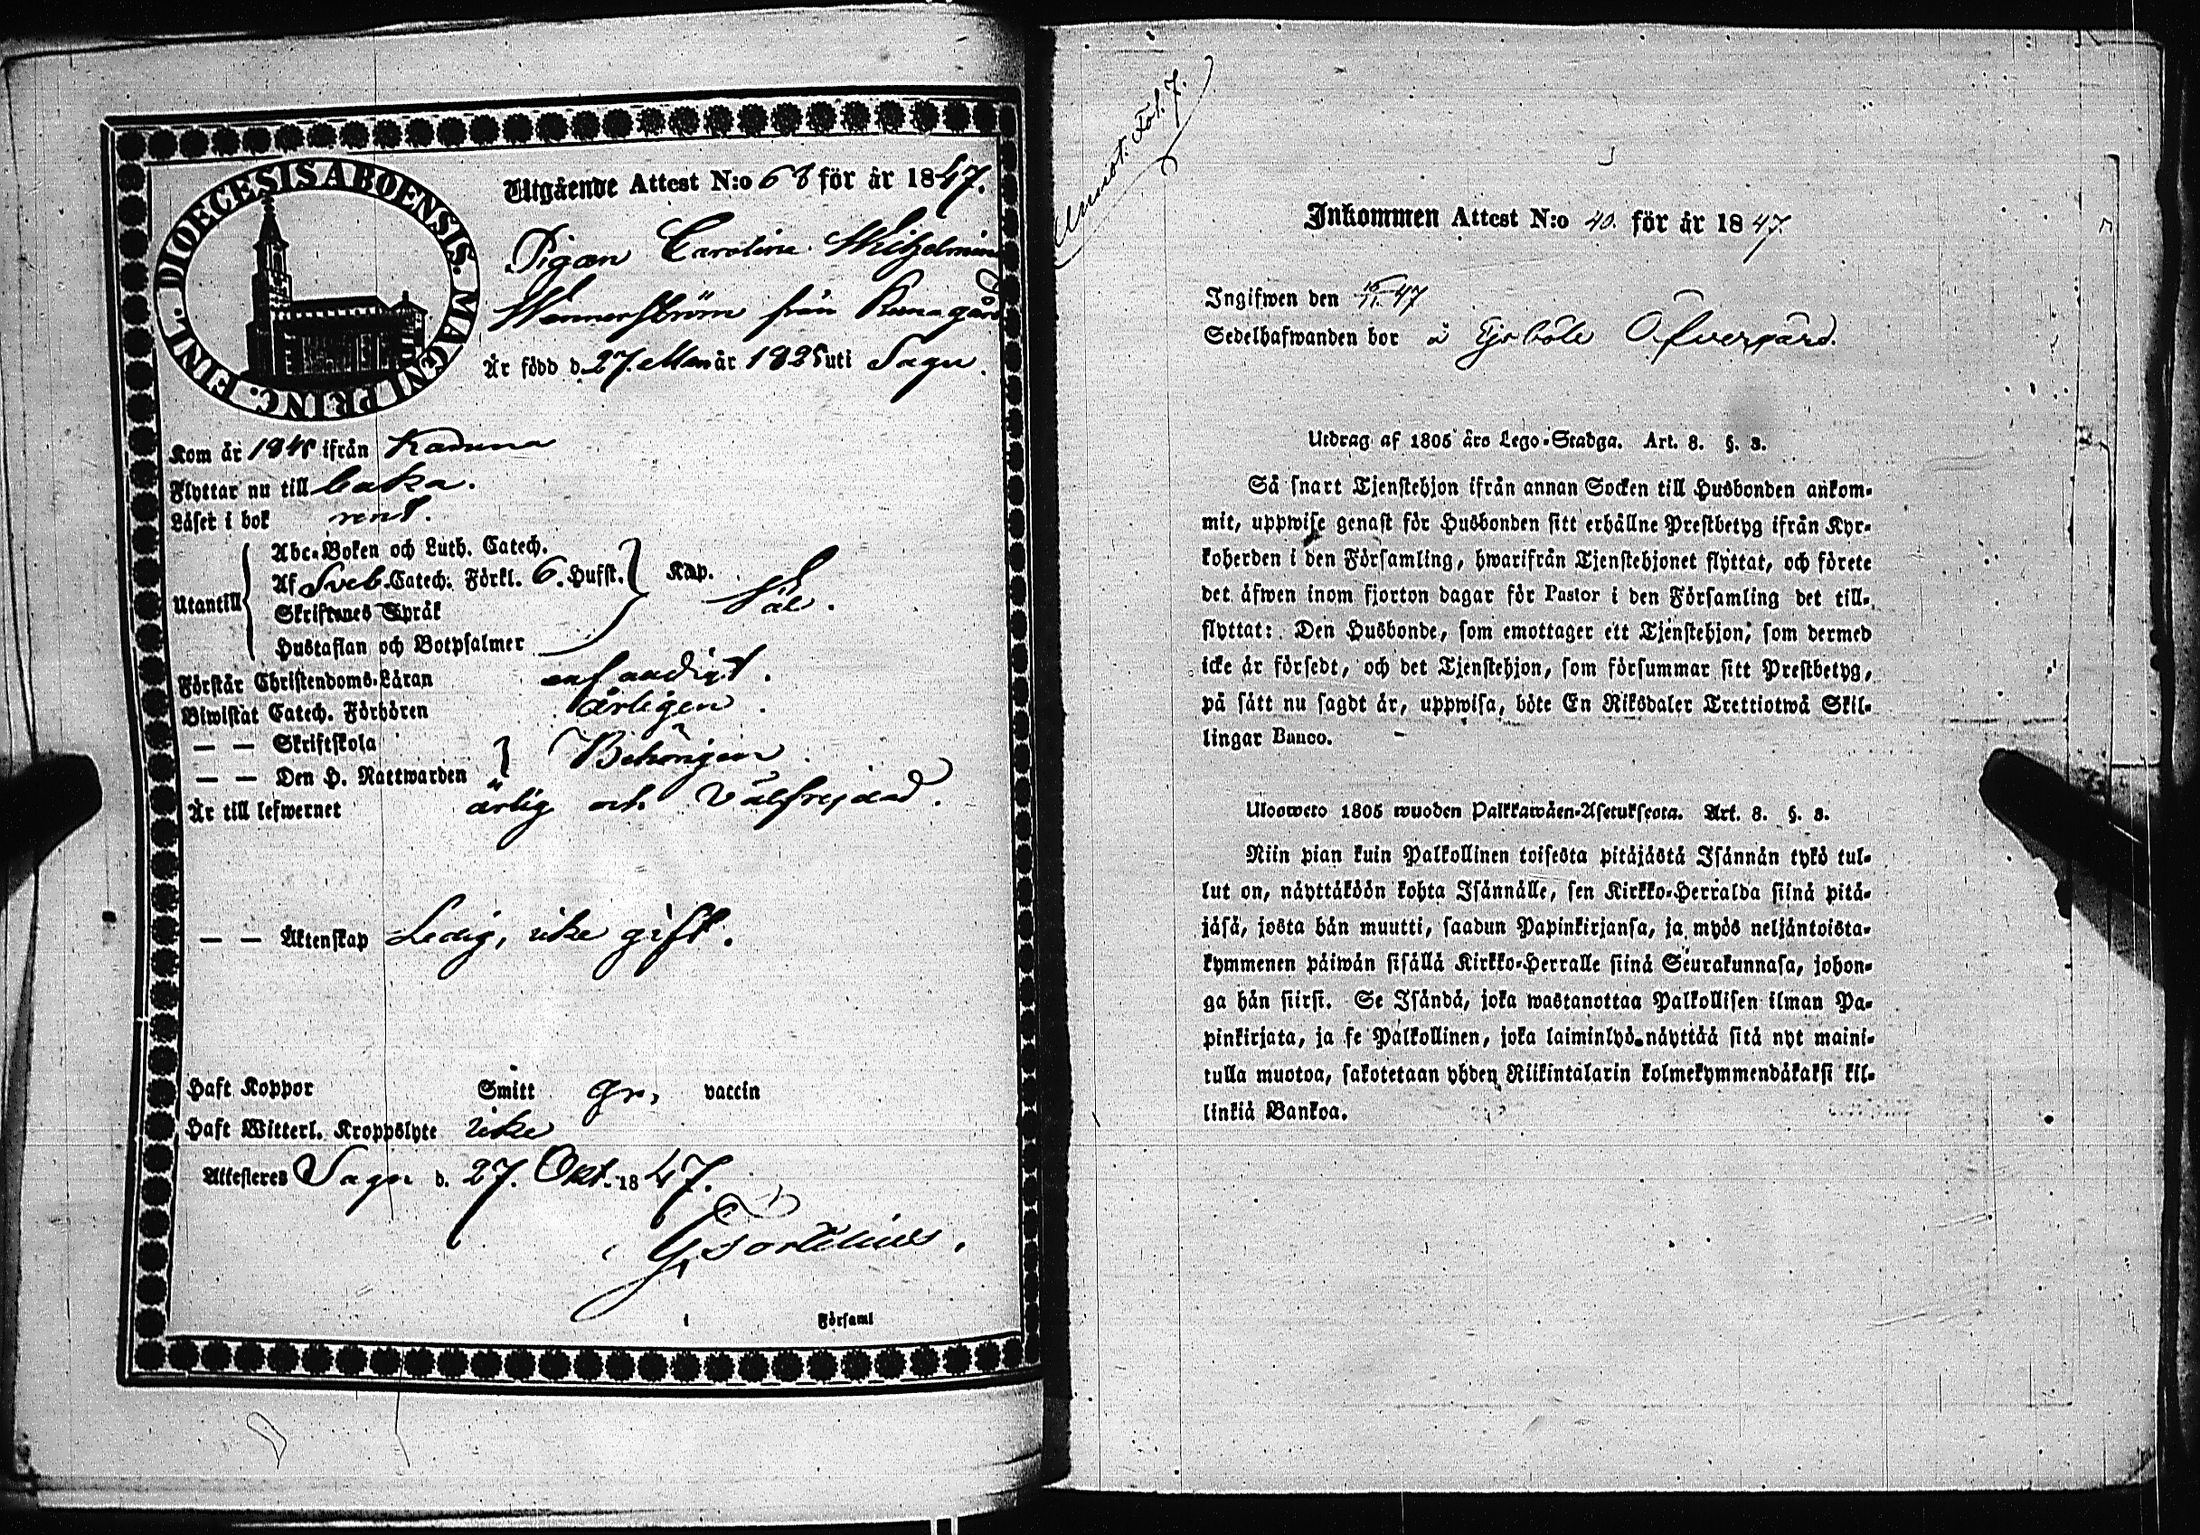 DIOECESIS ABOENSIS. MAGNI PRINC. FINL.
Utgående Attest N:o 68 för år 1847.
Pigan Carolina Wilhelmina
Wennerström från
Är född d. 27. Maji år 1825 uti Sagu.
Kom år 184 ifrån Karuna
Flyttar nu till baka.
Läser i bok rent.
Utantill
Abc-Boken och Luth. Catech.
Af Sveb. Catech. Förkl. 6. Hufst. Kap.
Skriftenes Språk
Hustaflan och Botpsalmer
väl.
Förstår Christendoms-Läran enfaldigt.
Biwistat Catech. Förhören årligen.
— — Skriftskola
— — Den H. Nattwarden Behörigen.
Är till lefwernet ärlig och välfrejdad.
— — Äktenskap Ledig, icke gift.
Haft Koppor Smitt gn. vaccin
Haft Witterl. Kroppslyte icke
Attesteres Sagu d. 27. Okt. 1847.
G. Tortelius.
i Församl
Annot. Fol. 7.
Inkommen Attest N:o 40. för år 1847.
Ingifwen den 16/11 47
Sedelhafwanden bor å Gestböle Öfvergård.
Utdrag af 1805 års Lego-Stadga. Art. 8. §. 8.
Så snart Tjenstehjon ifrån annan Socken till Husbonden ankom-
mit, uppwise genast för Husbonden sitt erhållne Prestbetyg ifrån Kyr-
koherden i den Församling, hwarifrån Tjenstehjonet flyttat, och förete
det äfwen inom fjorton dagar för Pastor i den Församling det till-
flyttat: Den Husbonde, som emottager ett Tjenstehjon, som dermed
icke är försedt, och det Tjenstehjon, som försummar sitt Prestbetyg,
på sätt nu sagdt är, uppwisa, böte En Riksdaler Trettiotwå Skil-
lingar Banco.
Ulosweto 1805 wuoden Palkkawäen-Asetuksesta. Art. 8. §. 8.
Niin pian kuin Palkollinen toisesta pitäjästä Isännän tykö tul-
lut on, näyttäköön kohta Isännälle, sen Kirkko-Herralda siinä pitä-
jäsä, josta hän muutti, saadun Papinkirjansa, ja myös neljäntoista-
kymmenen päiwän sisällä Kirkko-Herralle siinä Seurakunnasa, johon-
ga hän siirsi. Se Isändä, joka wastanottaa Palkollisen ilman Pa-
pinkirjata, ja se Palkollinen, joka laiminlyö näyttää sitä nyt maini-
tulla muotoa, sakotetaan yhden Riikintalarin kolmekymmendäkaksi kil-
linkiä Bankoa.